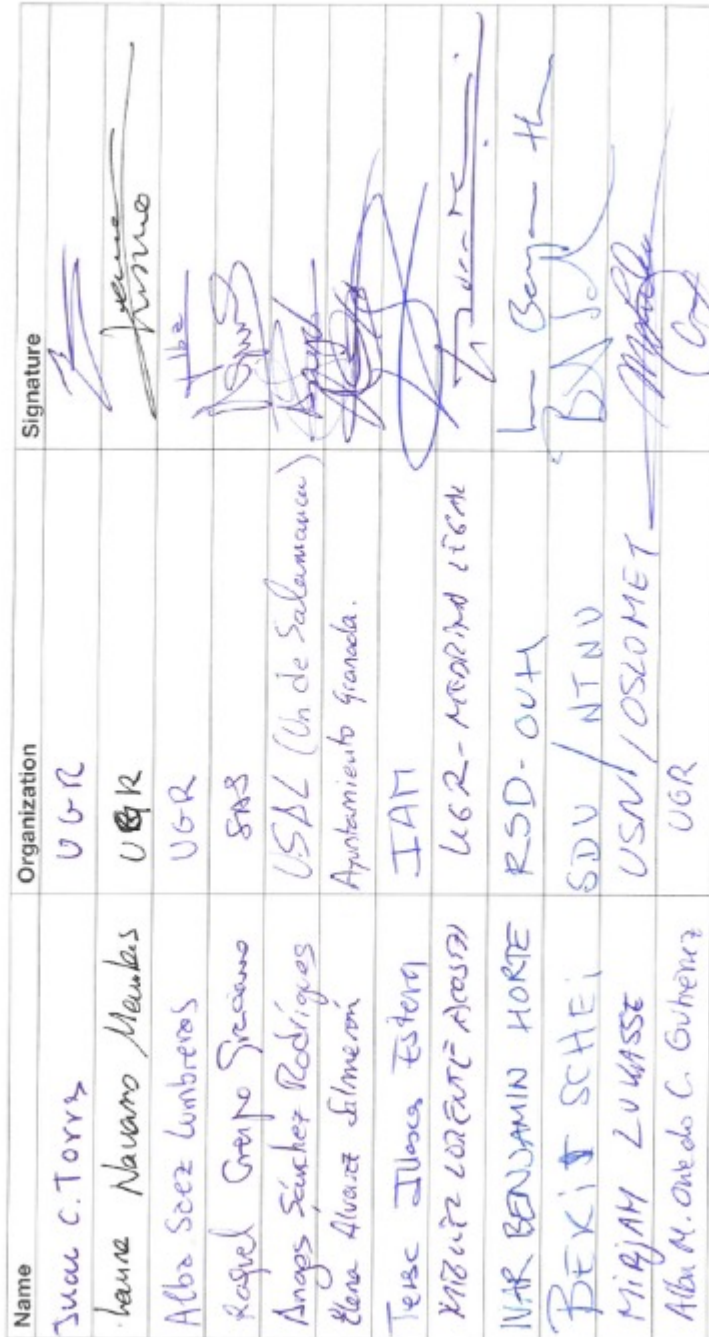 Name Organization Signature
Juan C. Torres UGR
Laura Navarro Mendes UGR
Alba Saez Lumbreras UGR Alba
Raquel Crespo Graciano SAS
Angos Sánchez Rodríguez USAL (Un de Salamanca)
Elena Alvarez Salmerón Ayuntamiento Granada.
Terse Illasca Esteva IAM
MIGUEL LORENTE ACOSTA UGR - MEDICINA LEGAL
IVAR BENJAMIN HORTE RSD-OUH
BERIT SCHEI SDU / NTNU
MIRJAM LUKASSE USN / OSLOMET
Alba M. Oviedo C. Gutiérrez UGR